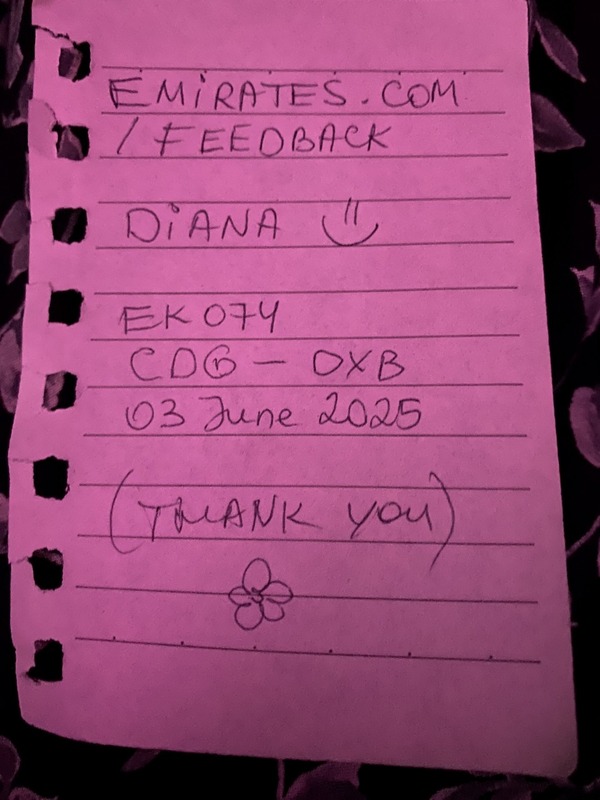 EMiRATES.COM
/ FEEDBACK
DiANA
EK 074
CDG – DXB
03 June 2025
(THANK YOU)